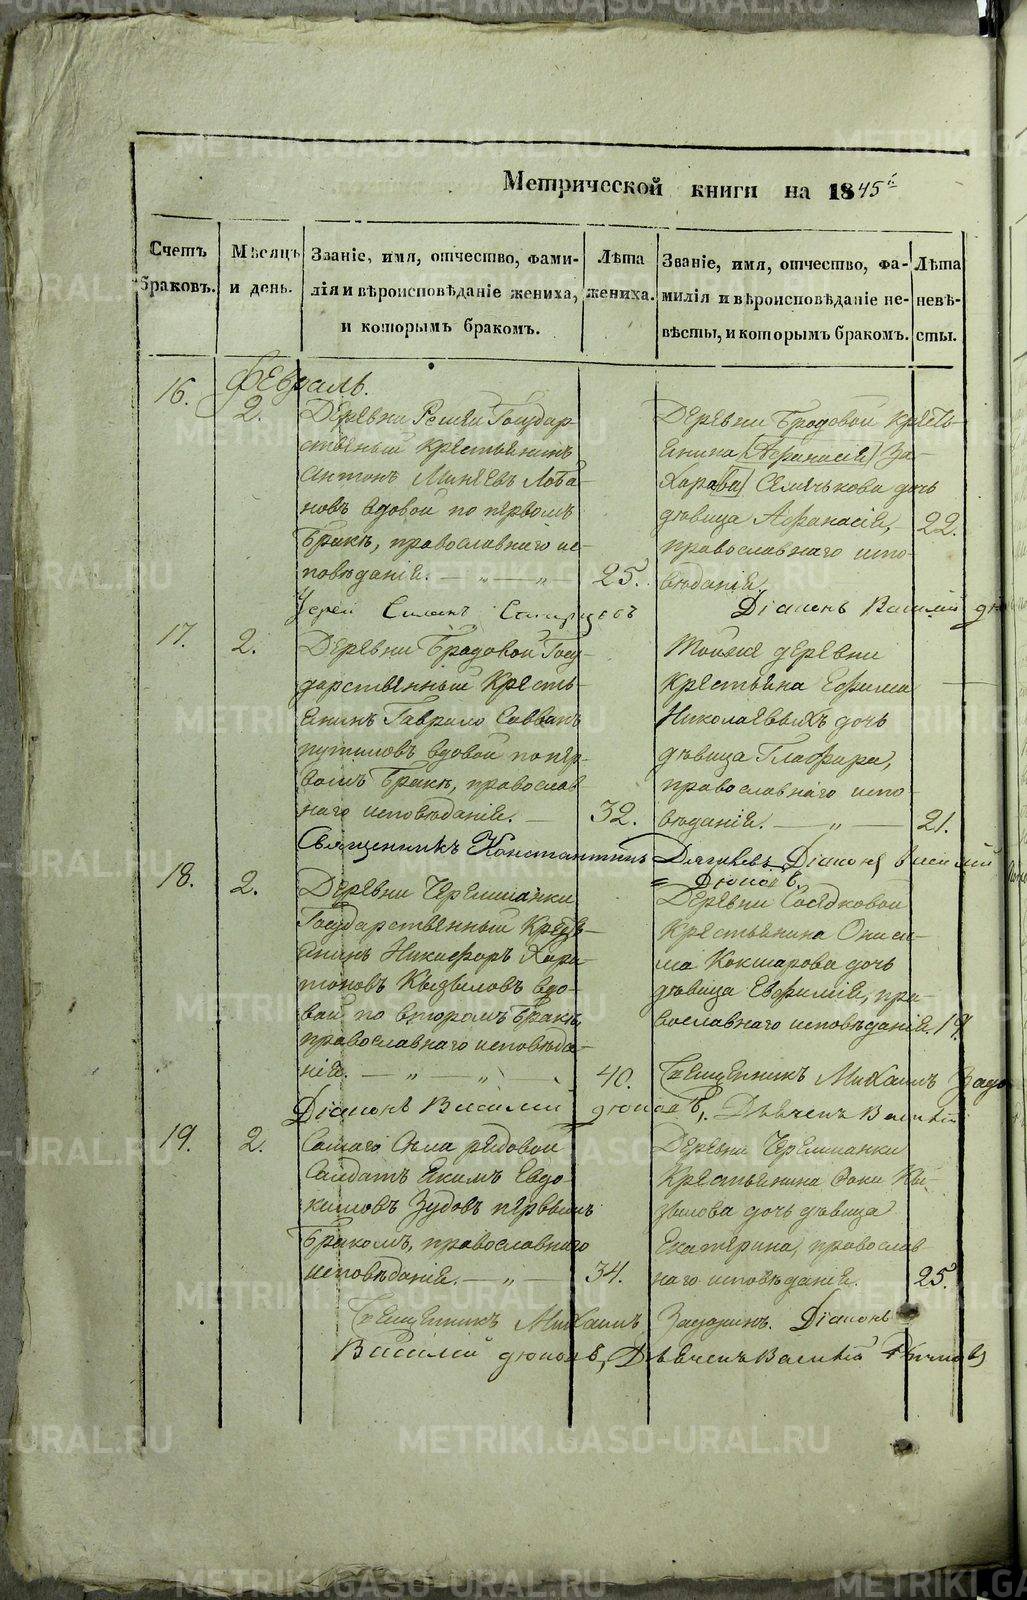 Метрической книги на 1845й
Счетъ браковъ.
Мѣсяцъ и день.
Званіе, имя, отчество, фами-
лія и вѣроисповѣданіе жениха,
и которымъ бракомъ.
Лѣта
жениха.
Званіе, имя, отчество, фа-
милія и вѣроисповѣданіе не-
вѣсты, и которымъ бракомъ.
Лѣта
невѣ-
сты.
Февраль.
16.
2.
Деревни Государ
ственный Крестьянинъ
Антонъ Минѣевъ Лоба-
новъ вдовой по первомъ
бракѣ, православнаго ис-
повѣданія.
25.
Деревни Бродовой Кресть-
янина (Афанасія) За-
хара(ва) Семячкова дочь
дѣвица Афанасія,
православнаго испо-
вѣданія.
22.
Іерей Симонъ
Діаконъ Василій
17.
2.
Деревни Бродовой Госу-
дарственный Кресть-
янинъ Гаврило Саввинъ
путиловъ вдовой по пер-
вомъ бракѣ, православ
наго исповѣданія.
32.
Тойже деревни
Крестьяна Ефима
Николаевыхъ дочь
дѣвица Глафира,
православнаго испо-
вѣданія.
21.
Священникъ Константинъ Дягилевъ. Діаконъ Василій
Дюковъ.
18.
2.
Деревни Черемшанки
Государственный Кресть-
янинъ Никифоръ Хари-
тоновъ Кызыловъ вдо-
вой по второмъ бракѣ,
православнаго исповѣда-
нія.
40.
Деревни Соседковой
КрестьянинаОниси-
ма Кокшарова дочь
дѣвица Евфимія, пра-
вославнаго исповѣданія.
19.
Священникъ Михаилъ
Діаконъ Василій Дюковъ,
19.
2.
Самаго Села рядовой
Солдатъ Екимъ Евдо-
кимовъ Зудовъ первымъ
бракомъ, православнаго
исповѣданія.
34.
Деревни Черемшанки
Крестьянина Фоки Кы-
зылова дочь дѣвица
Екатерина, православ
наго исповѣданія.
25.
Священникъ Михаилъ Задоринъ. Діаконъ
Василій Дюковъ,
METRIKI.GASO-URAL.RU